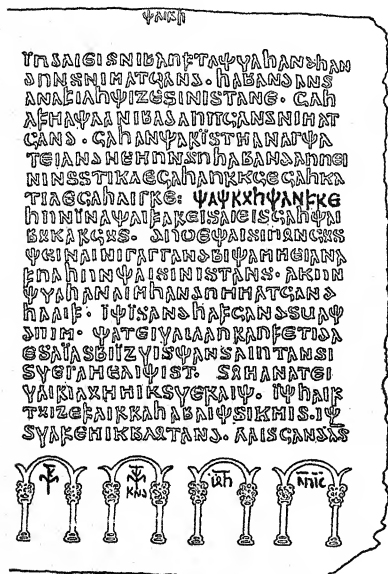 𐌸𐌰𐌹𐍂𐌷
𐌹̈𐌿𐌳𐌰𐌹𐌴𐌹𐍃𐌽𐌹𐌱𐌰𐌿𐍆𐍄𐌰𐌸𐍅𐌰𐌷𐌰𐌽𐌳𐌷𐌰𐌽
𐌳𐌿𐌽𐍃𐌽𐌹𐌼𐌰𐍄𐌾𐌰𐌽𐌳·𐌷𐌰𐌱𐌰𐌽𐌳𐌰𐌽𐍃
𐌰𐌽𐌰𐍆𐌹𐌻𐌷𐌸𐌹𐌶𐌴𐍃𐌹𐌽𐌹𐍃𐍄𐌰𐌽𐌴·𐌾𐌰𐌷
𐌰𐍆𐌼𐌰𐌸𐌻𐌰𐌽𐌹𐌱𐌰𐌳𐌰𐌿𐍀𐌾𐌰𐌽𐌳𐌽𐌹𐌼𐌰𐍄
𐌾𐌰𐌽𐌳·𐌾𐌰𐌷𐌰𐌽𐌸𐌰𐍂𐌹̈𐍃𐍄𐌼𐌰𐌽𐌰𐌲𐌸𐌰
𐍄𐌴𐌹𐌰𐌽𐌳𐌽𐌴𐌼𐌿𐌽𐌳𐌿𐌷𐌰𐌱𐌰𐌽𐌳𐌰𐌿𐍀𐌴𐌹
𐌽𐌹𐌽𐍃𐍃𐍄𐌹𐌺𐌻𐌴𐌾𐌰𐌷𐌰𐌿𐍂𐌺𐌾𐌴𐌾𐌰𐌷𐌺𐌰
𐍄𐌹𐌻𐌴𐌾𐌰𐌷𐌻𐌹𐌲𐍂𐌴:𐌸𐌰𐌸𐍂𐍉𐌷𐌸𐌰𐌽𐍆𐍂𐌴
𐌷𐌿𐌽𐌹̈𐌽𐌰𐌸𐌰𐌹𐍆𐌰𐍂𐌴𐌹𐍃𐌰𐌹𐌴𐌹𐍃𐌾𐌰𐌷𐌸𐌰𐌹
𐌱𐍉𐌺𐌰𐍂𐌾𐍉𐍃·𐌳𐌿𐍈𐌴𐌸𐌰𐌹𐍃𐌹𐍀𐍉𐌽𐌾𐍉𐍃
𐌸𐌴𐌹𐌽𐌰𐌹𐌽𐌹𐌲𐌰𐌲𐌲𐌰𐌽𐌳𐌱𐌹𐌸𐌰𐌼𐌼𐌴𐌹𐌰𐌽𐌰
𐍆𐌿𐌻𐌷𐌿𐌽𐌸𐌰𐌹𐍃𐌹𐌽𐌹𐍃𐍄𐌰𐌽𐍃·𐌰𐌺𐌿𐌽
𐌸𐍅𐌰𐌷𐌰𐌽𐌰𐌹𐌼𐌷𐌰𐌽𐌳𐌿𐌼𐌼𐌰𐍄𐌾𐌰𐌽𐌳
𐌷𐌻𐌰𐌹𐍆·𐌹̈𐌸𐌹̈𐍃𐌰𐌽𐌳𐌷𐌰𐍆𐌾𐌰𐌽𐌳𐍃𐌵𐌰𐌸
𐌳𐌿𐌹𐌼·𐌸𐌰𐍄𐌴𐌹𐍅𐌰𐌹𐌻𐌰𐍀𐍂𐌰𐌿𐍆𐌴𐍄𐌹𐌳𐌰
𐌴𐍃𐌰𐌹̈𐌰𐍃𐌱𐌹𐌹̈𐌶𐍅𐌹𐍃𐌸𐌰𐌽𐍃𐌻𐌹𐌿𐍄𐌰𐌽𐍃
𐍃𐍅𐌴𐌲𐌰𐌼𐌴𐌻𐌹𐌸𐌹̈𐍃𐍄·𐍃𐍉𐌼𐌰𐌽𐌰𐌲𐌴𐌹
𐍅𐌰𐌹𐍂𐌹𐌻𐍉𐌼𐌼𐌹𐌺𐍃𐍅𐌴𐍂𐌰𐌹𐌸·𐌹̈𐌸𐌷𐌰𐌹𐍂
𐍄𐍉𐌹𐌶𐌴𐍆𐌰𐌹𐍂𐍂𐌰𐌷𐌰𐌱𐌰𐌹𐌸𐍃𐌹𐌺𐌼𐌹𐍃·𐌹𐌸
𐍃𐍅𐌰𐍂𐌴𐌼𐌹𐌺𐌱𐌻𐍉𐍄𐌰𐌽𐌳·𐌻𐌰𐌹𐍃𐌾𐌰𐌽𐌳𐍃